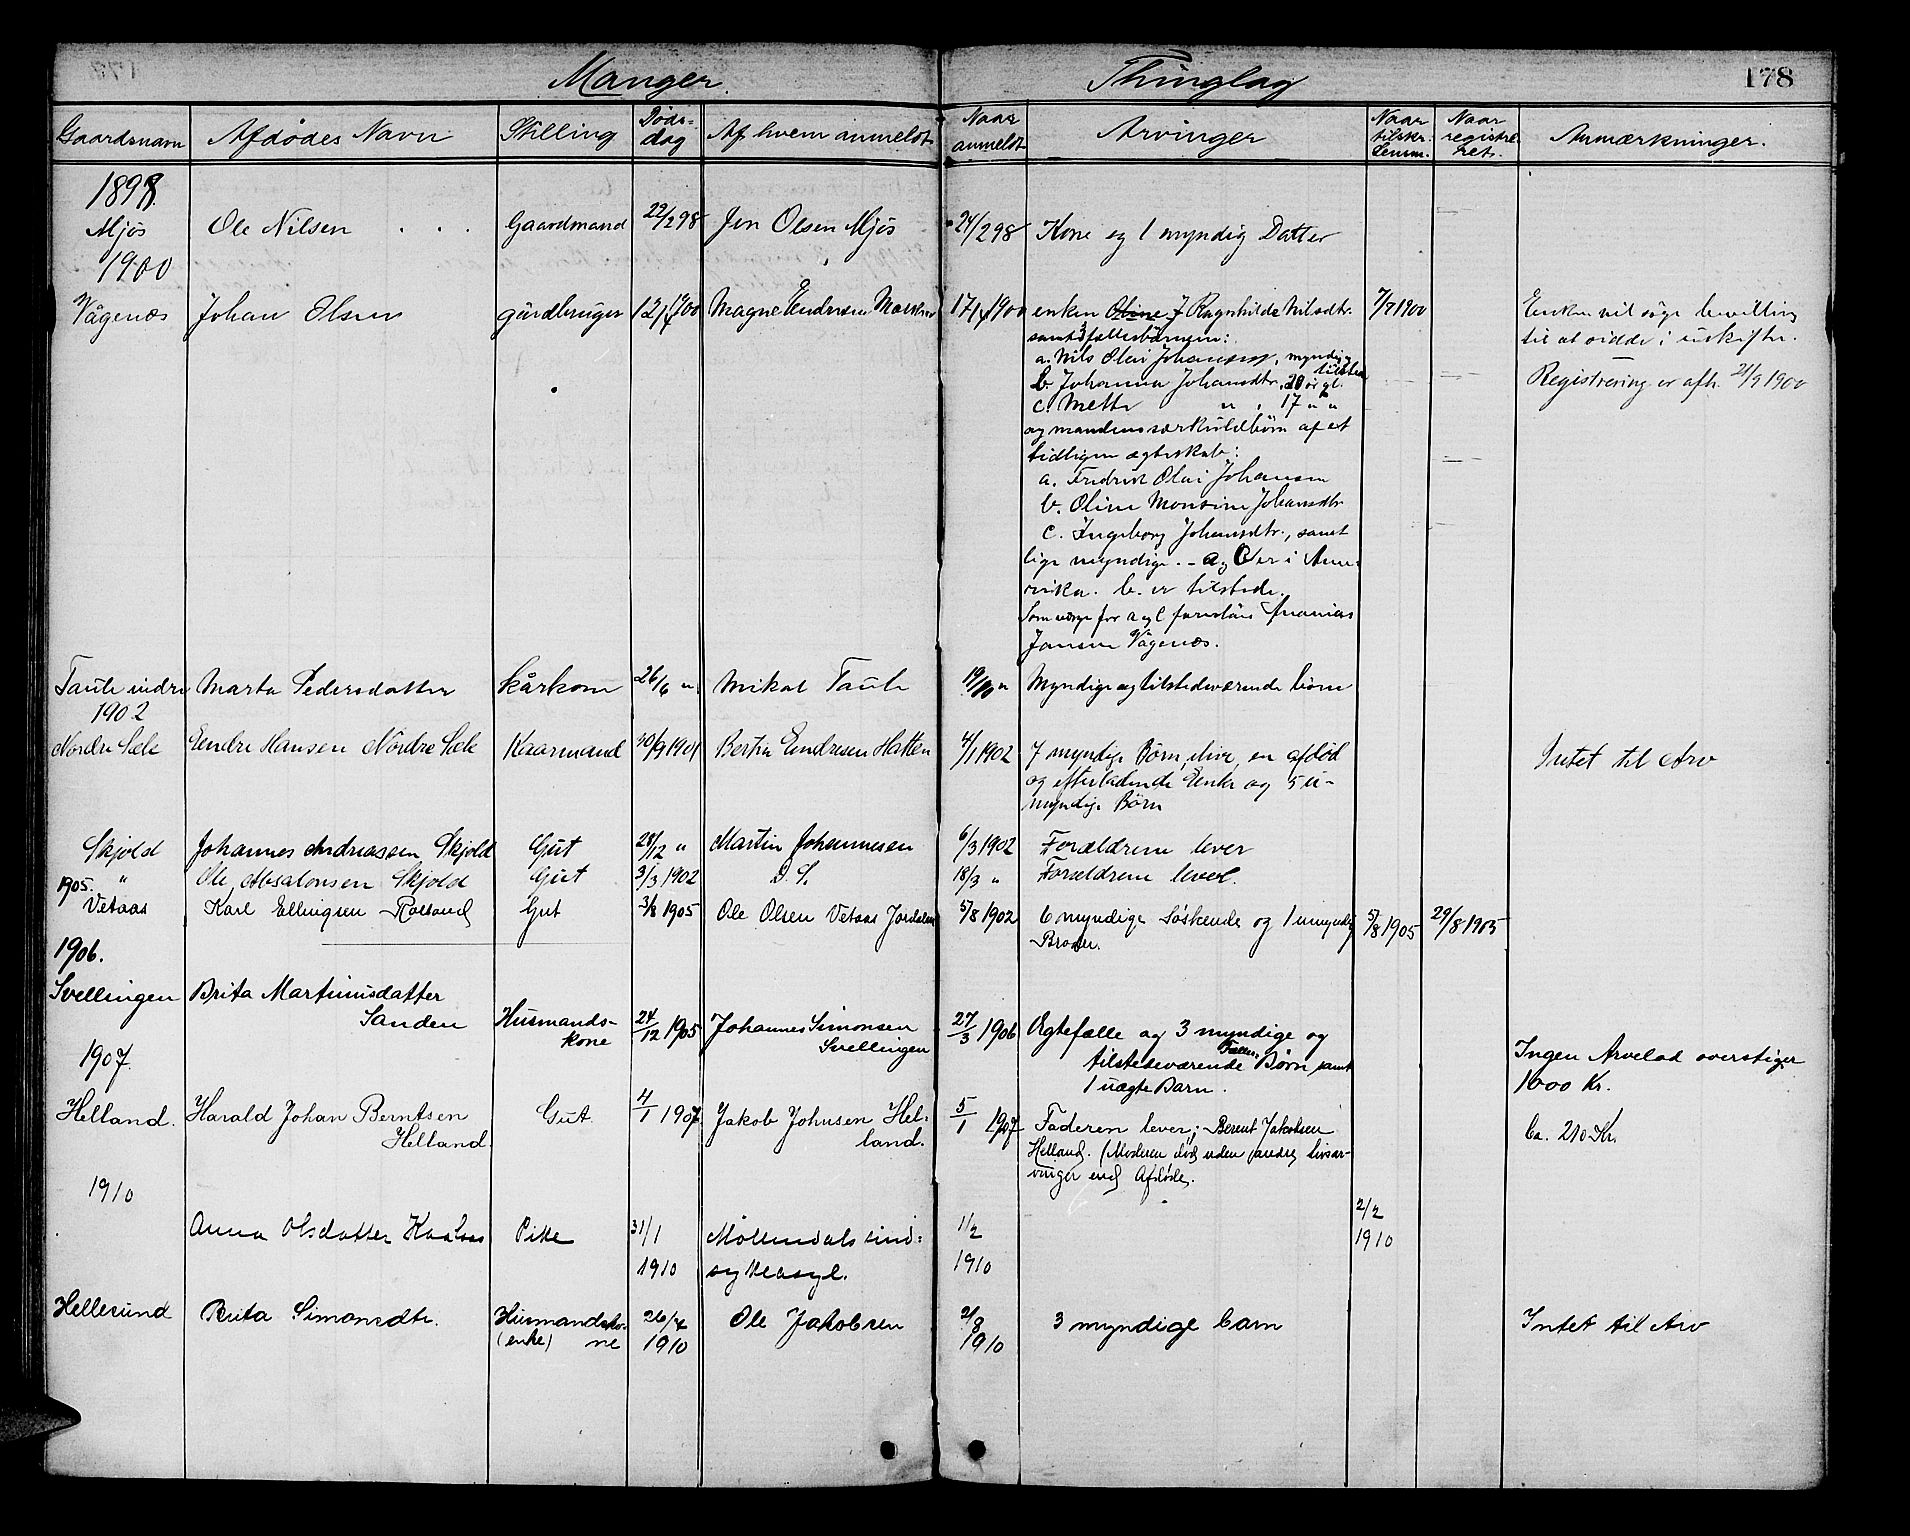 Manger Thinglag 178
Gaardsnavn Afdødes Navn Stilling Døds- Af hvem anmeldt Naar Arvinger Naar Naar Anmærkninger.
dag anmeldt tilskr. registre-
Lensm. ret.
1898.
Mjøs Ole Nilsen . . . Gaardmand 22/2 98 Jon Olsen Mjøs 24/2 98 Kone og 1 myndig Datter
1900
Vågenæs Johan Olsen gårdbruger 12/7 1900 Magne Endresen 17/7 1900 enken Oline J Ragnhilde Nilsdtr. 7/7 1900 Enken vil søge bevilling
samt 3 fællesbørnene: til at sidde i uskifte.
a. Nils Olai Johansen, myndig
tilstede
b. Johanna Johansdtr. 20 år gl. Registrering er afh. 21/9 1900
c. Mette " , 17 " "
og mandens særkuldbørn af et
tidligere ægteskab:
a. Fredrik Olai Johansen
b. Oline Monsine Johansdtr
c. Ingeborg Johansdtr., samt
lige myndige. - a og c er i Ame-
rika. b. er tilstede.
Som værge for a og c foreslåes Ananias
Jansen Vågenæs.
Taule indre Marta Pedersdatter kårkone 26/6 " Mikal Taule 19/10 " Myndige og tilstedeværende börn
1902
Nordre Sæle Endre Hansen Nordre Sæle Kaarmand 30/9 1901 Bertin Endresen Hatten 4/1 1902 7 myndige Børn ilive, en afdød Intet til Arv
og efterladende Enke og 5 u-
myndige Børn
Skjold Johannes Andreassen Skjold Gut 28/12 " Martin Johannesen 6/3 1902 Forældrene lever
" Ole Absalonsen Skjold Gut 3/3 1902 D. S. 18/3 " Forældrene lever.
1905.
Vetaas Karl Ellingsen Rolland Gut 3/8 1905 Ole Olsen Vetaas Jordalen 5/8 1902 6 myndige Søskende og 1 umyndig 5/8 1905 29/8 1905
Broder.
1906.
Svellingen Brita Martinusdatter
Sanden Husmands- 24/12 1905 Johannes Simonsen 27/3 1906 Ægtefælle og 3 myndige og
kone Svellingen tilstedeværende Fælles Børn samt Ingen Arvelod overstiger
1907. 1 uægte Barn. 1600 Kr.
Helland. Harald Johan Berntsen Gut. 4/1 1907 Jakob Johnsen Hel- 5/1 1907 Faderen lever; Berent Jakobsen Ca. 210 Kr.
Helland. land. Helland. (Moderen død uden andre livsar-
vinger end Afdøde.
1910
Anna Olsdatter Pike 31/1 Møllendals sind- 1/2 2/2
1910 sygeasyl. 1910 1910
Hellesund Brita Simonsdtr. Husmandsko- 26/7 Ole Jakobsen 2/8 3 myndige barn Intet til Arv
(enke) ne 1910 1910